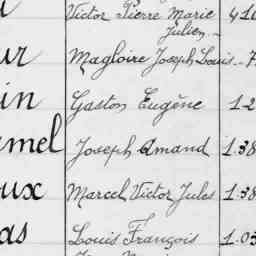 Victor Pierre Marie
Julien
ur Magloire Joseph Louis 7
in Gaston Eugène 12
mel Joseph Amand 1.38
oux Marcel Victor Jules 1.38
as Louis François 1.03